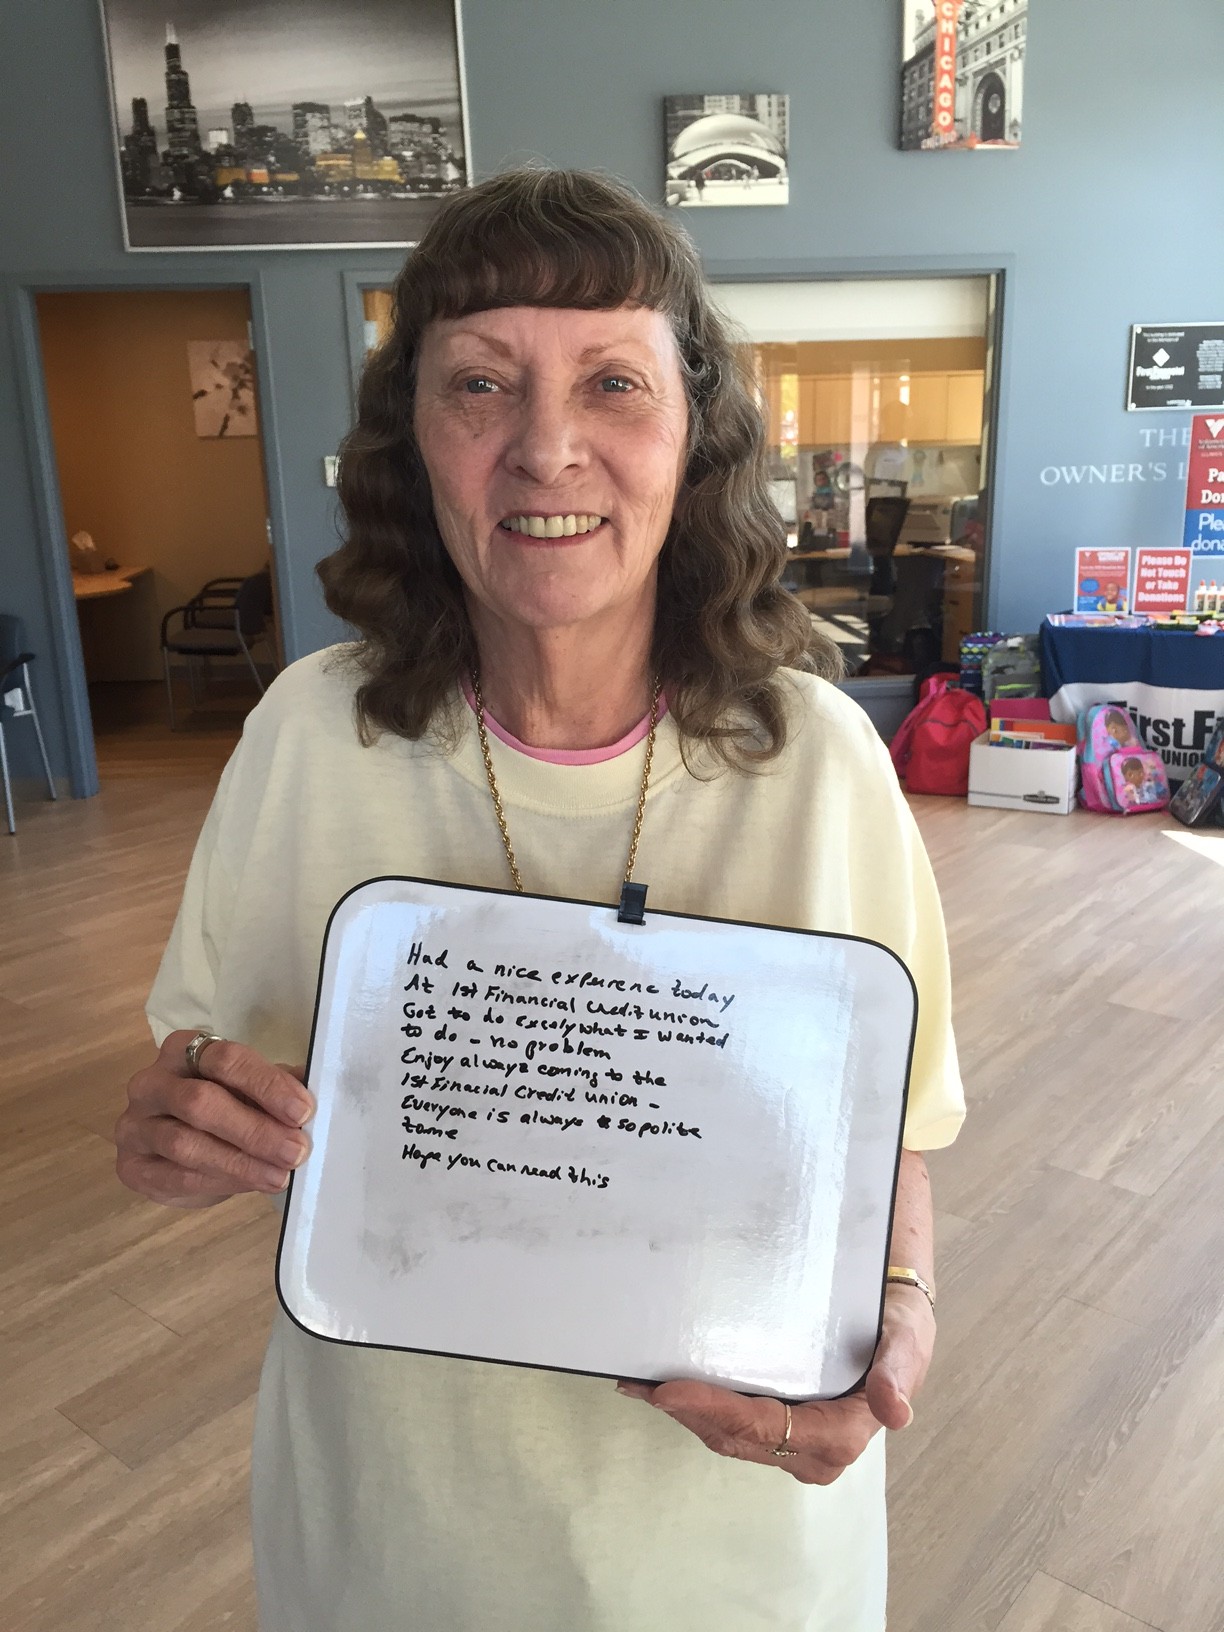 CHICAGO
CHICAGO
First Financial
THE
OWNER'S L
Pa
Don
Plea
dona
Please Do
Not Touch
or Take
Donations
First Fi
UNION
Had a nice experence today
At 1st Financial Credit union
Got to do excaly what I wanted
to do - no problem
Enjoy always coming to the
1st Finacial Credit union -
Everyone is always so polite
tome
Hope you can read this